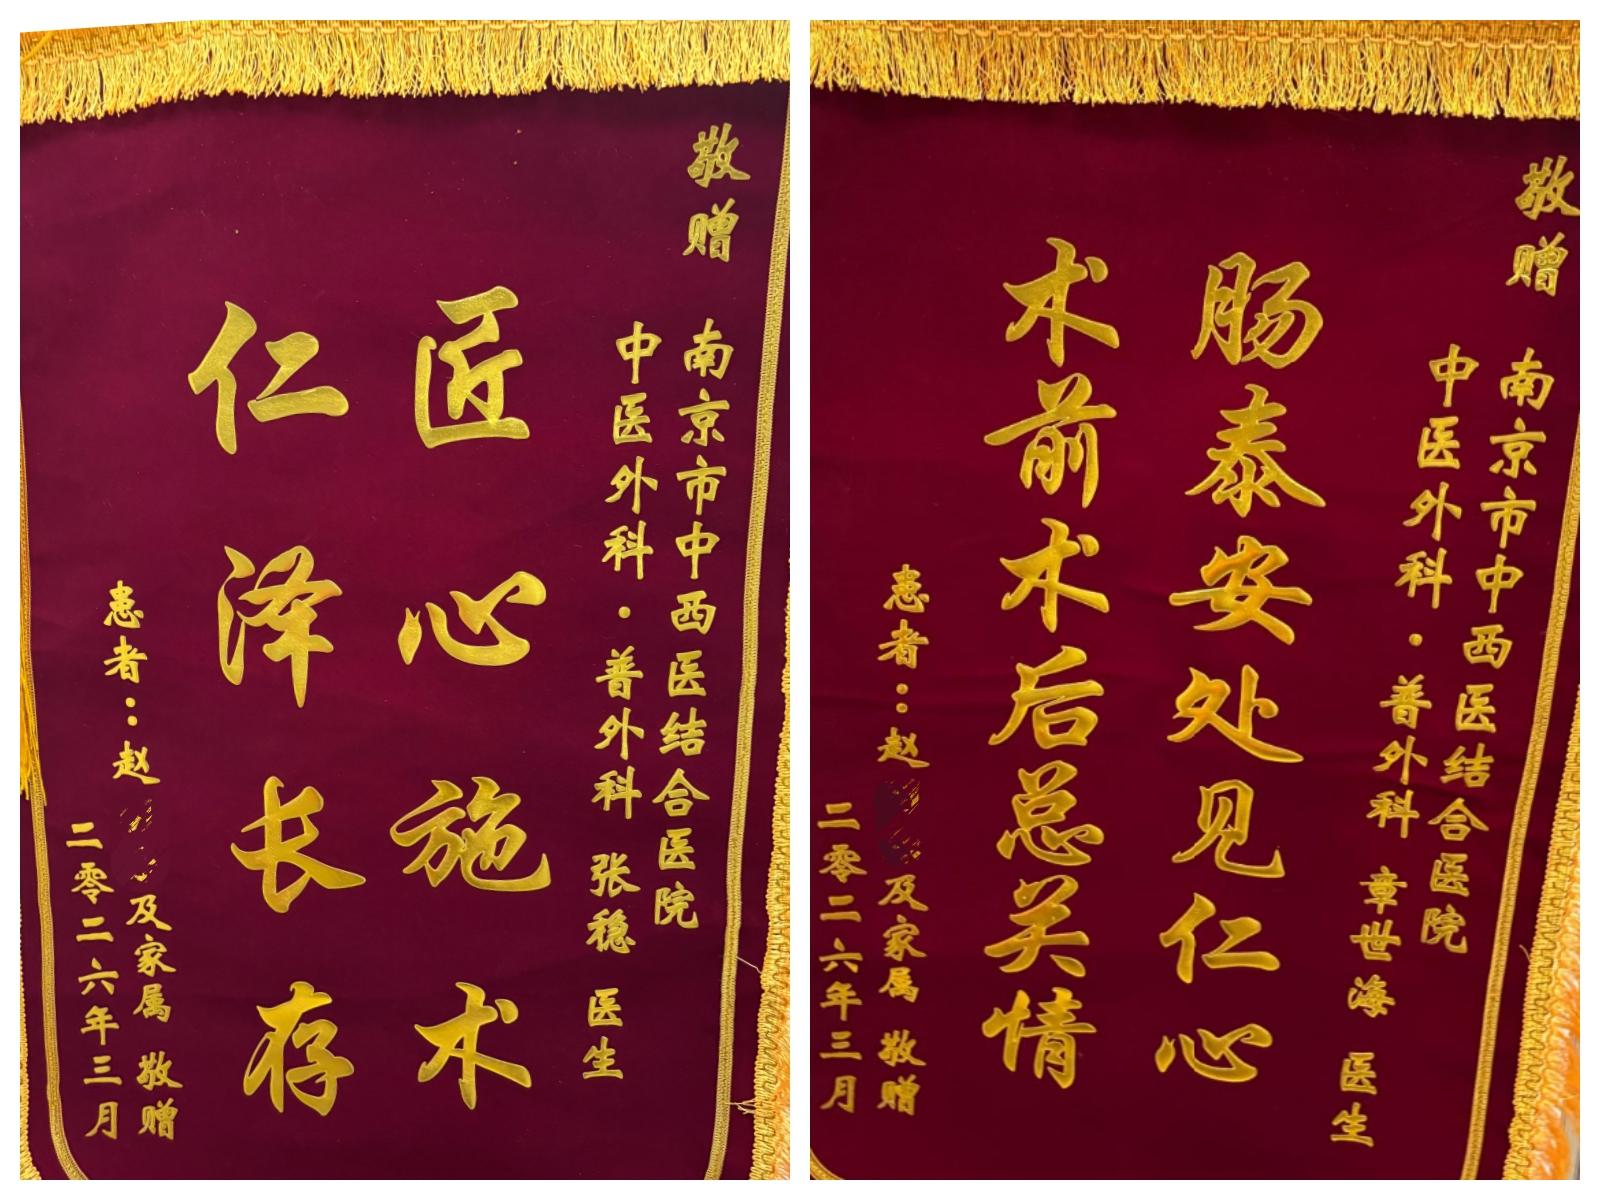 敬赠
南京市中西医结合医院
中医外科·普外科 张稳 医生
匠心施术
仁泽长存
患者：赵 及家属 敬赠
二零二六年三月
敬赠
南京市中西医结合医院
中医外科·普外科 章世海 医生
肠泰安处见仁心
术前术后总关情
患者：赵 及家属 敬赠
二零二六年三月